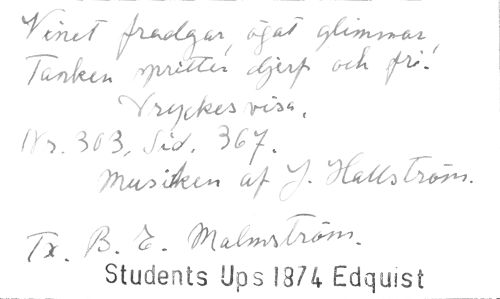 Vinet fradgar, ögat glimmar,
Tanken spritter djerf och fri!
Dryckesvisa.
Nr. 303, Sid. 367.
Musiken af J. Hallström.
Tx. B. E. Malmström.
Students Ups 1874 Edquist